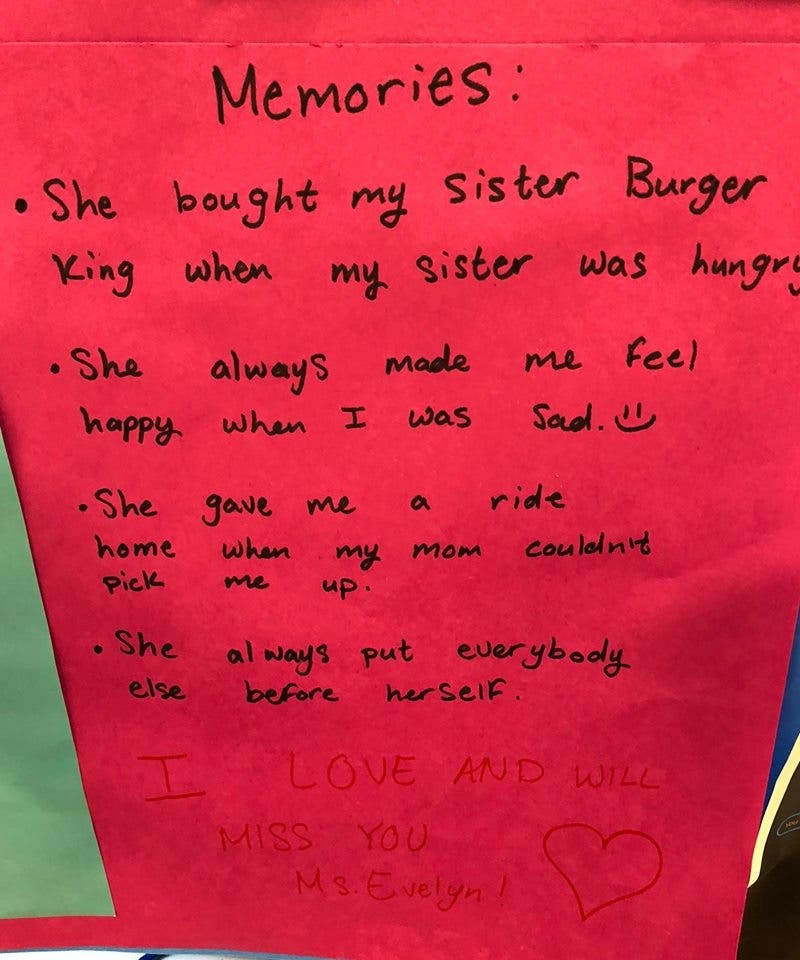 Memories:
• She bought my sister Burger
King when my sister was hungry
• She always made me feel
happy when I was sad. :)
• She gave me a ride
home when my mom couldn't
pick me up.
• She always put everybody
else before herself.
I LOVE AND WILL
MISS YOU
Ms. Evelyn!